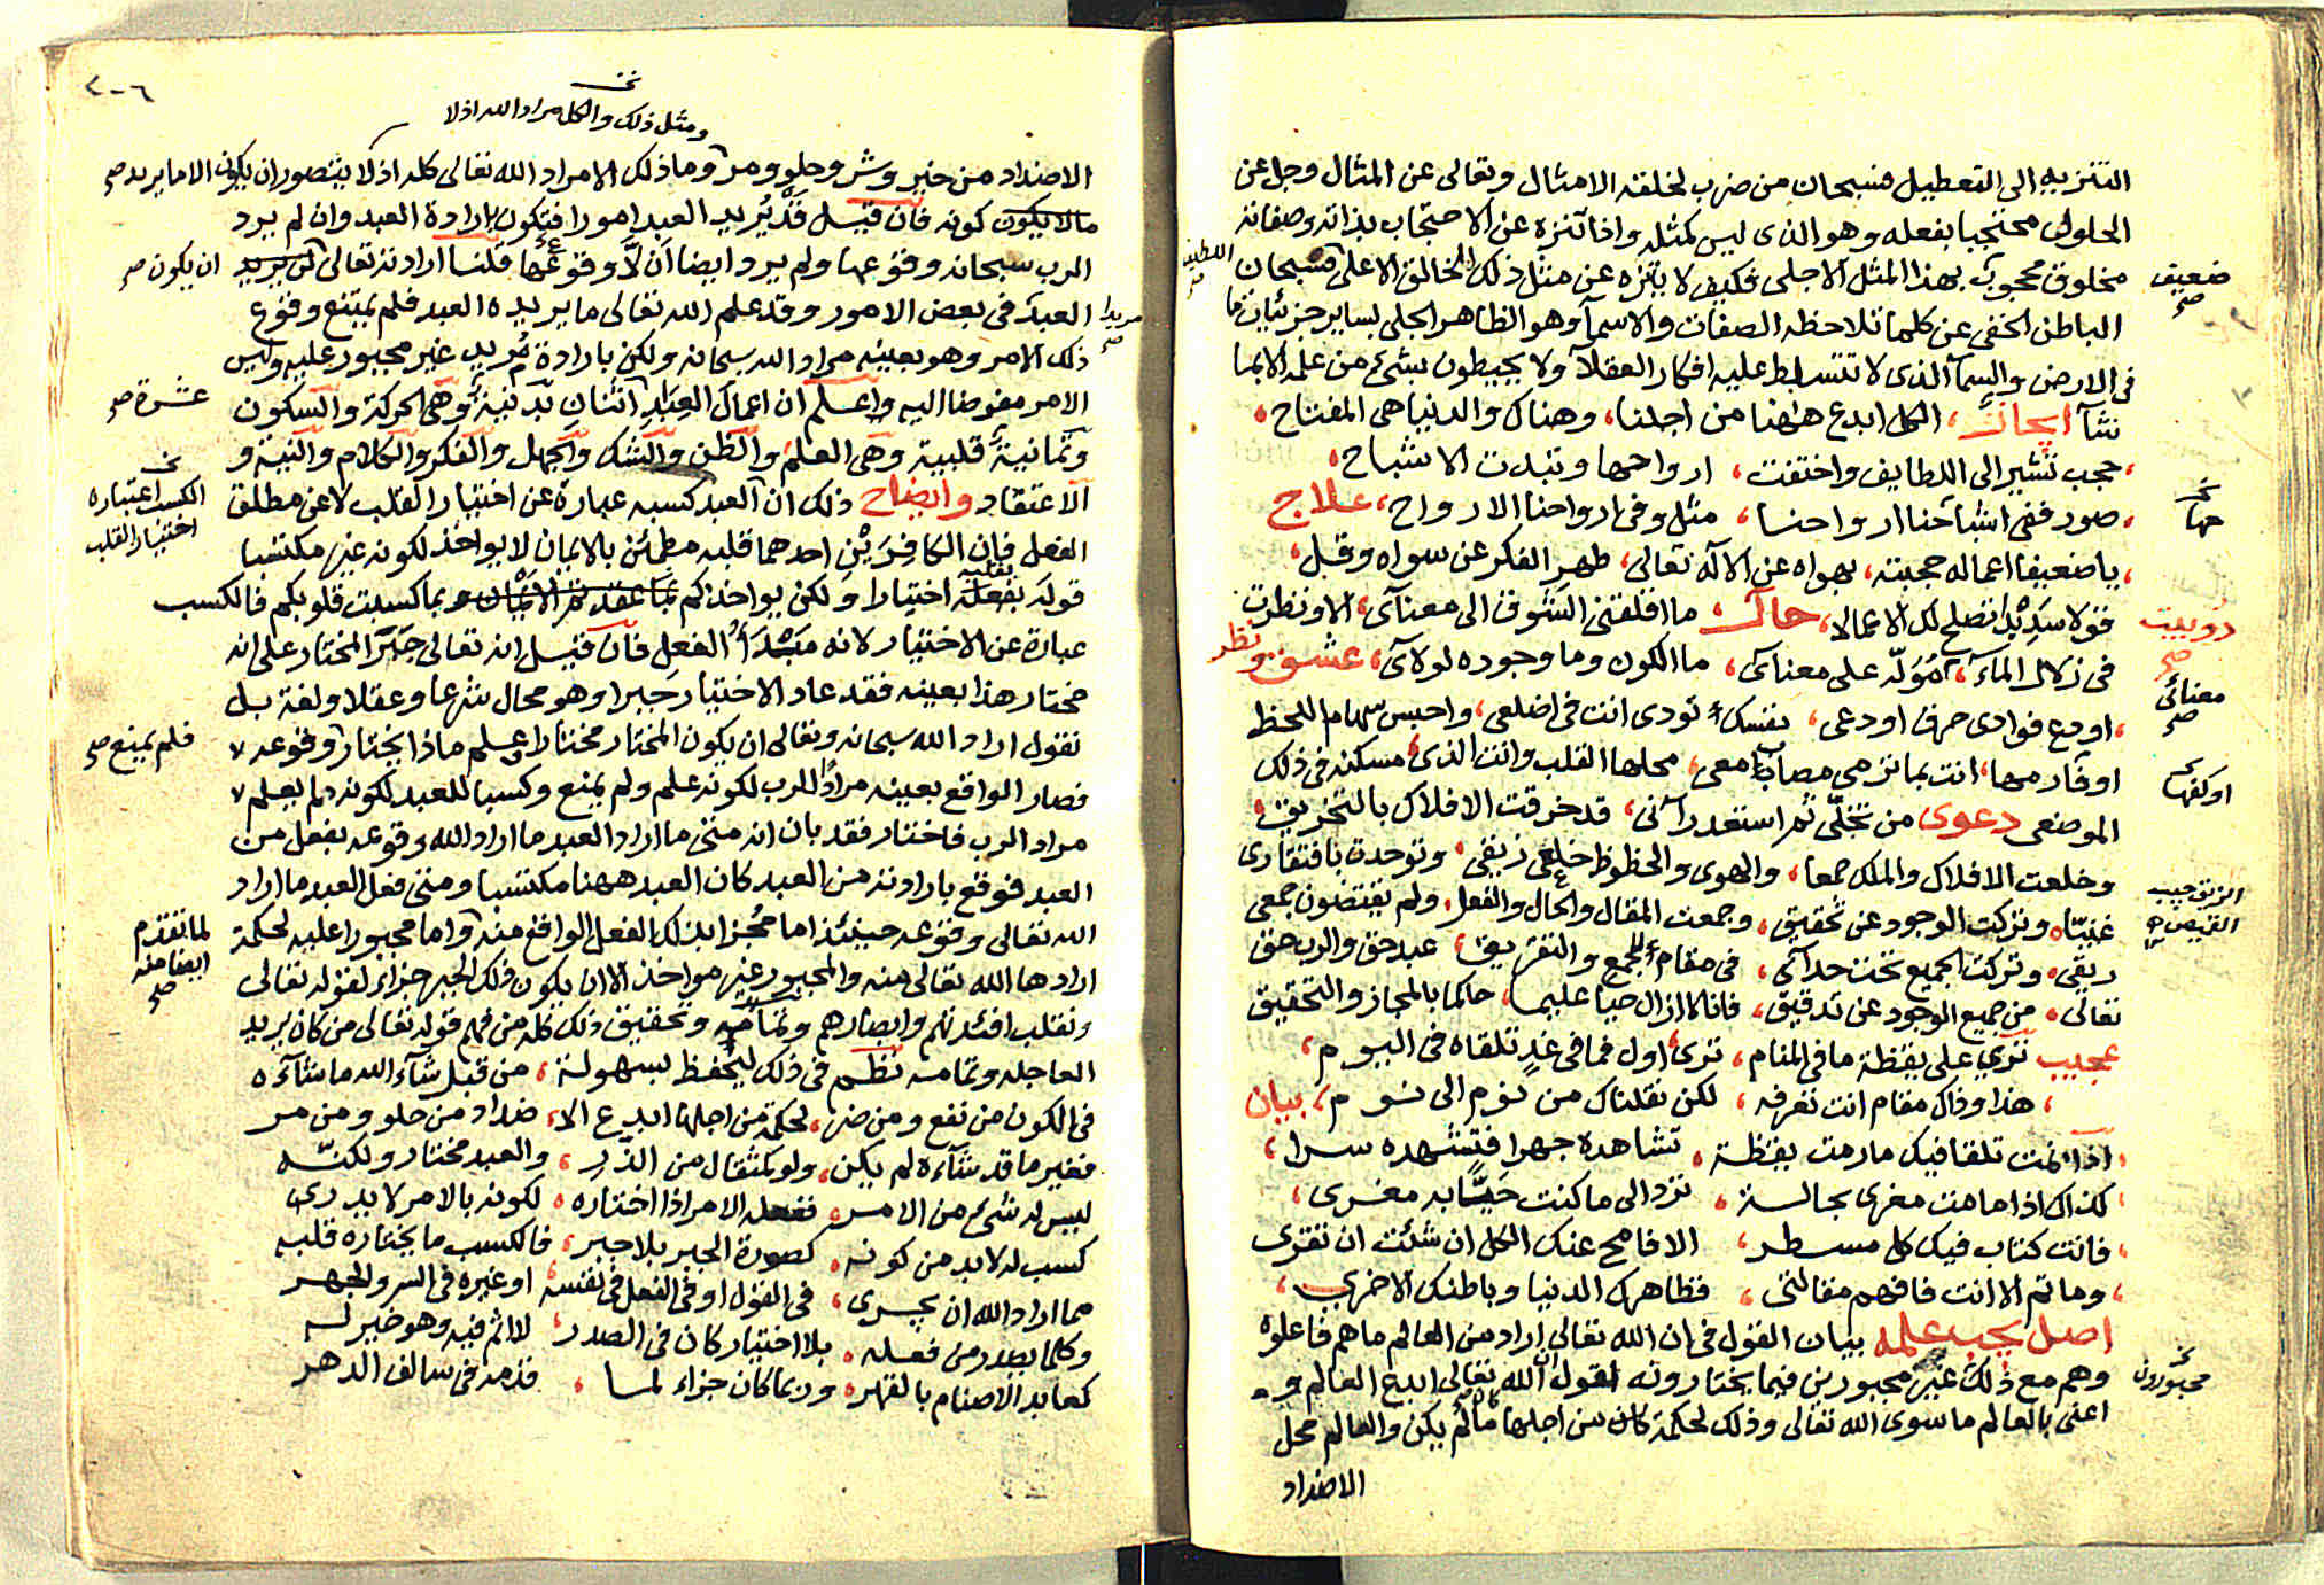 التنزيه الى التعطيل فسبحان من ضرب لخلقه الامثال وتعالى عن المثال وجل عن
الحلول محتجبا بفعله وهو الذى ليس كمثله واذا تنزه عن الاحتجاب بذاته وصفاته
مخلوق محجوب بهذا المثل الاجلى فكيف لا يتنزه عن مثل ذلك الخالق الاعلى فسبحان اللطيف صح
ضعيف صح
الباطن الخفى عن كلما تلاحظه الصفات والاسمآ وهو الظاهر الجلى بساير جزئيات ما
فى الارض والسمآ الذى لا تتسلط عليه افكار العقلآ ولا يحيطون بشئ من علمه الا بما
شآ ايجاد، الكل ابدع ههنا من اجلنا، وهناك والدنيا هى المفتاح،
، حجب تشير الى اللطايف واختفت، ارواحها وتبدت الاشباح،
، صور ففى اشباحنا ارواحنا، مثل وفى ارواحنا الارواح، علاج
، يا ضعيفا اعماله حجبته، بهواه عن الاله تعالى، طهر الفكر عن سواه وقل،
قولا سديدا تصلح لك الاعمالا، حال ما اقلقنى الشوق الى معنآى، الا ونظرت
دوبيت صح
فى زلال المآء، مولّه على معنآى، ما الكون وما وجوده لولآى، عشق ونظر
معنائى صح
، اودع فوادى حرقا اودعى، نفسك تودى انت فى اضلعى، واحبس سهام اللحظ
او فارمها، انت بما ترمى مصاب معى، محلها القلب وانت الذى، مسكنه فى ذلك
او كفها
الموضعى دعوى من تخلّى ثم استغد رآنى، قد خرقت الافلاك بالتخريق،
وخلعت الافلاك والملك جمعا، والهوى والحظوظ خلعى زيقى، وتوحدت بافتقارى
الزيق جيب القميص
غنيّا، وتركت الوجود عن تحقيق، وجمعت المقال والحال والفعل، ولم يقتضون جمعى
ريقى، وتركت الجميع تحت حدآئى، فى مقام للجمع والتفريق، عبد حق والرب حق
تعالى، من جميع الوجود عن تدقيق، فانا لا ازال حيا عليها، حاكما بالمجاز والتحقيق
عجيب ترى على يقظة ما فى المنام، ترى اول فما فى غد تلقاه فى اليوم،
، هذا وذاك مقام انت تعرفه، لكن نقلناك من نوم الى نوم، بيان
، اذا نمت تلقا فيك ما رمت يقظة، تشاهده جهرا فتشهده سرا،
، كذاك اذا ما مت مغرى بحالة، ترد الى ما كنت حيّا به مغرى،
، فانت كتاب فيك كل مسطر، الا فامح عنك الكل ان شئت ان تقرى
، وما ثم الا انت فافهم مقالتى، فظاهرك الدنيا وباطنك الاخرى،
اصل يجب علمه بيان القول فى ان الله تعالى اراد من العالم ما هم فاعلوه
وهم مع ذلك غير مجبورين فيما يختارونه اقول ان الله تعالى ابدع العالم و
مجبورون
اعنى بالعالم ما سوى الله تعالى وذلك لحكمة كان من اجلها ما لم يكن والعالم محل
الاضداد
٢٠٦
ومثل ذلك والكل مراد الله اذ لا
الاضداد من خير وشر وحلو ومر وما ذلك الا مراد الله تعالى كله اذ لا يتصور ان يكون الا ما يريد صح
ما لا يكون كونه فان قيل قد يريد العبد امورا فتكون بارادة العبد وان لم يرد
الرب سبحانه وقوعها ولم يرد ايضا ان لا وقوعها قلنا ارادته تعالى ان يريد ان يكون صح
مريدا صح
العبد فى بعض الامور وقد علم الله تعالى ما يريده العبد فلم يمتنع وقوع
ذلك الامر وهو بعينه مراد الله سبحانه ولكن بارادة مريد غير مجبور عليه وليس
الامر مفوضا اليه واعلم ان اعمال العباد اثنان بدنية وهى الحركة والسكون
عشرة صح
وثمانية قلبية وهى العلم والظن والشك والجهل والفكر والكلام والنية و
الاعتقاد وايضاح ذلك ان العبد كسبه عبارة عن اختيار القلب لا عن مطلق
الكسب اعتباره اختيار القلب
الفعل فان الكافرين احدهما قلبه مطمئن بالايمان لا يواخذ لكونه غير مكتسبا
قوله بفعله بقلبه اختيارا ولكن يواخذكم بما عقدتم الايمان بما كسبت قلوبكم فالكسب
عبارة عن الاختيار لانه مبتدأ الفعل فان قيل انه تعالى جبر المختار على انه
مختار هذا بعينه فقد عاد الاختيار جبرا وهو محال شرعا وعقلا ولغة بل
نقول اراد الله سبحانه وتعالى ان يكون المختار مختارا وعلم ماذا يختار وقوعه
فلم يمنع صح
فصار الواقع بعينه مرادا للرب لكونه علم ولم يمنع وكسبا للعبد لكونه لم يعلم
مراد الرب فاختار فقد بان انه متى ما اراد العبد ما اراد الله وقوعه بفعل من
العبد فوقع بارادته من العبد كان العبد ههنا مكتسبا ومتى فعل العبد ما اراد
الله تعالى وقوعه حينئذ اما مجزا بذلك الفعل الواقع منه واما مجبورا عليه لحكمة
لما تقدم ايضا منه صح
ارادها الله تعالى منه والمجبور غير مواخذ الا ان يكون ذلك الجبر جزاء لقوله تعالى
ونقلب افئدتهم وابصارهم وتمامه وتحقيق ذلك كله من فهم قوله تعالى من كان يريد
العاجلة وتمامه نظم فى ذلك ليحفظ بسهولة، من قبل شآء الله ما شآءه
فى الكون من نفع ومن ضر، لحكمة من اجلها ابدع الا، ضداد من حلو ومن مر
فغير ما قد شآءه لم يكن، ولو كمثقال من الذر، والعبد مختار ولكنّه
ليس له شئ من الامر، ففعله الامر اذا اختاره، لكونه بالامر لا يدرى
كسب له لا بد من كونه، كصورة الجبر بلا جبر، فالكسب ما يختاره قلبه
مما اراد الله ان يجرى، فى القول او فى الفعل فى نفسه، او غيره فى السر والجهر
وكلما يصدر من فعله، بلا اختيار كان فى الصدر، لا اثم فيه وهو خير له
كعابد الاصنام بالقهر، وربما كان جزاء لما، قدمه فى سالف الدهر